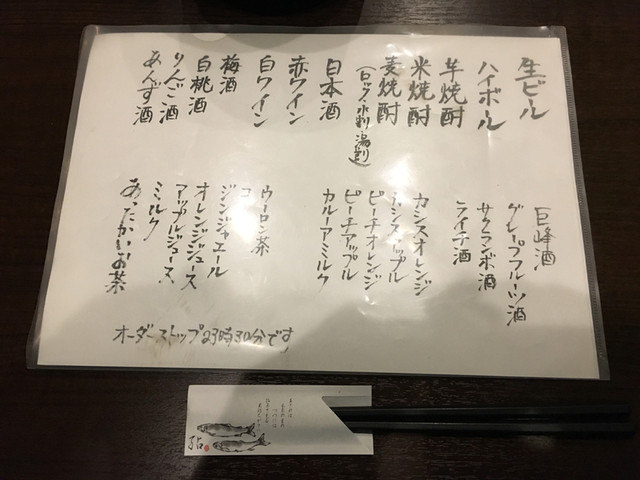 生ビール
ハイボール
芋焼酎
米焼酎
麦焼酎
(ロック、水割、湯割)
日本酒
赤ワイン
白ワイン
梅酒
白桃酒
りんご酒
あんず酒
巨峰酒
グレープフルーツ酒
サクランボ酒
ライチ酒
カシスオレンジ
カシスアップル
ピーチオレンジ
ピーチアップル
カルーアミルク
ウーロン茶
コ
ジンジャエール
オレンジジュース
アップルジュース
ミルク
あったかいお茶
オーダーストップ23時30分です